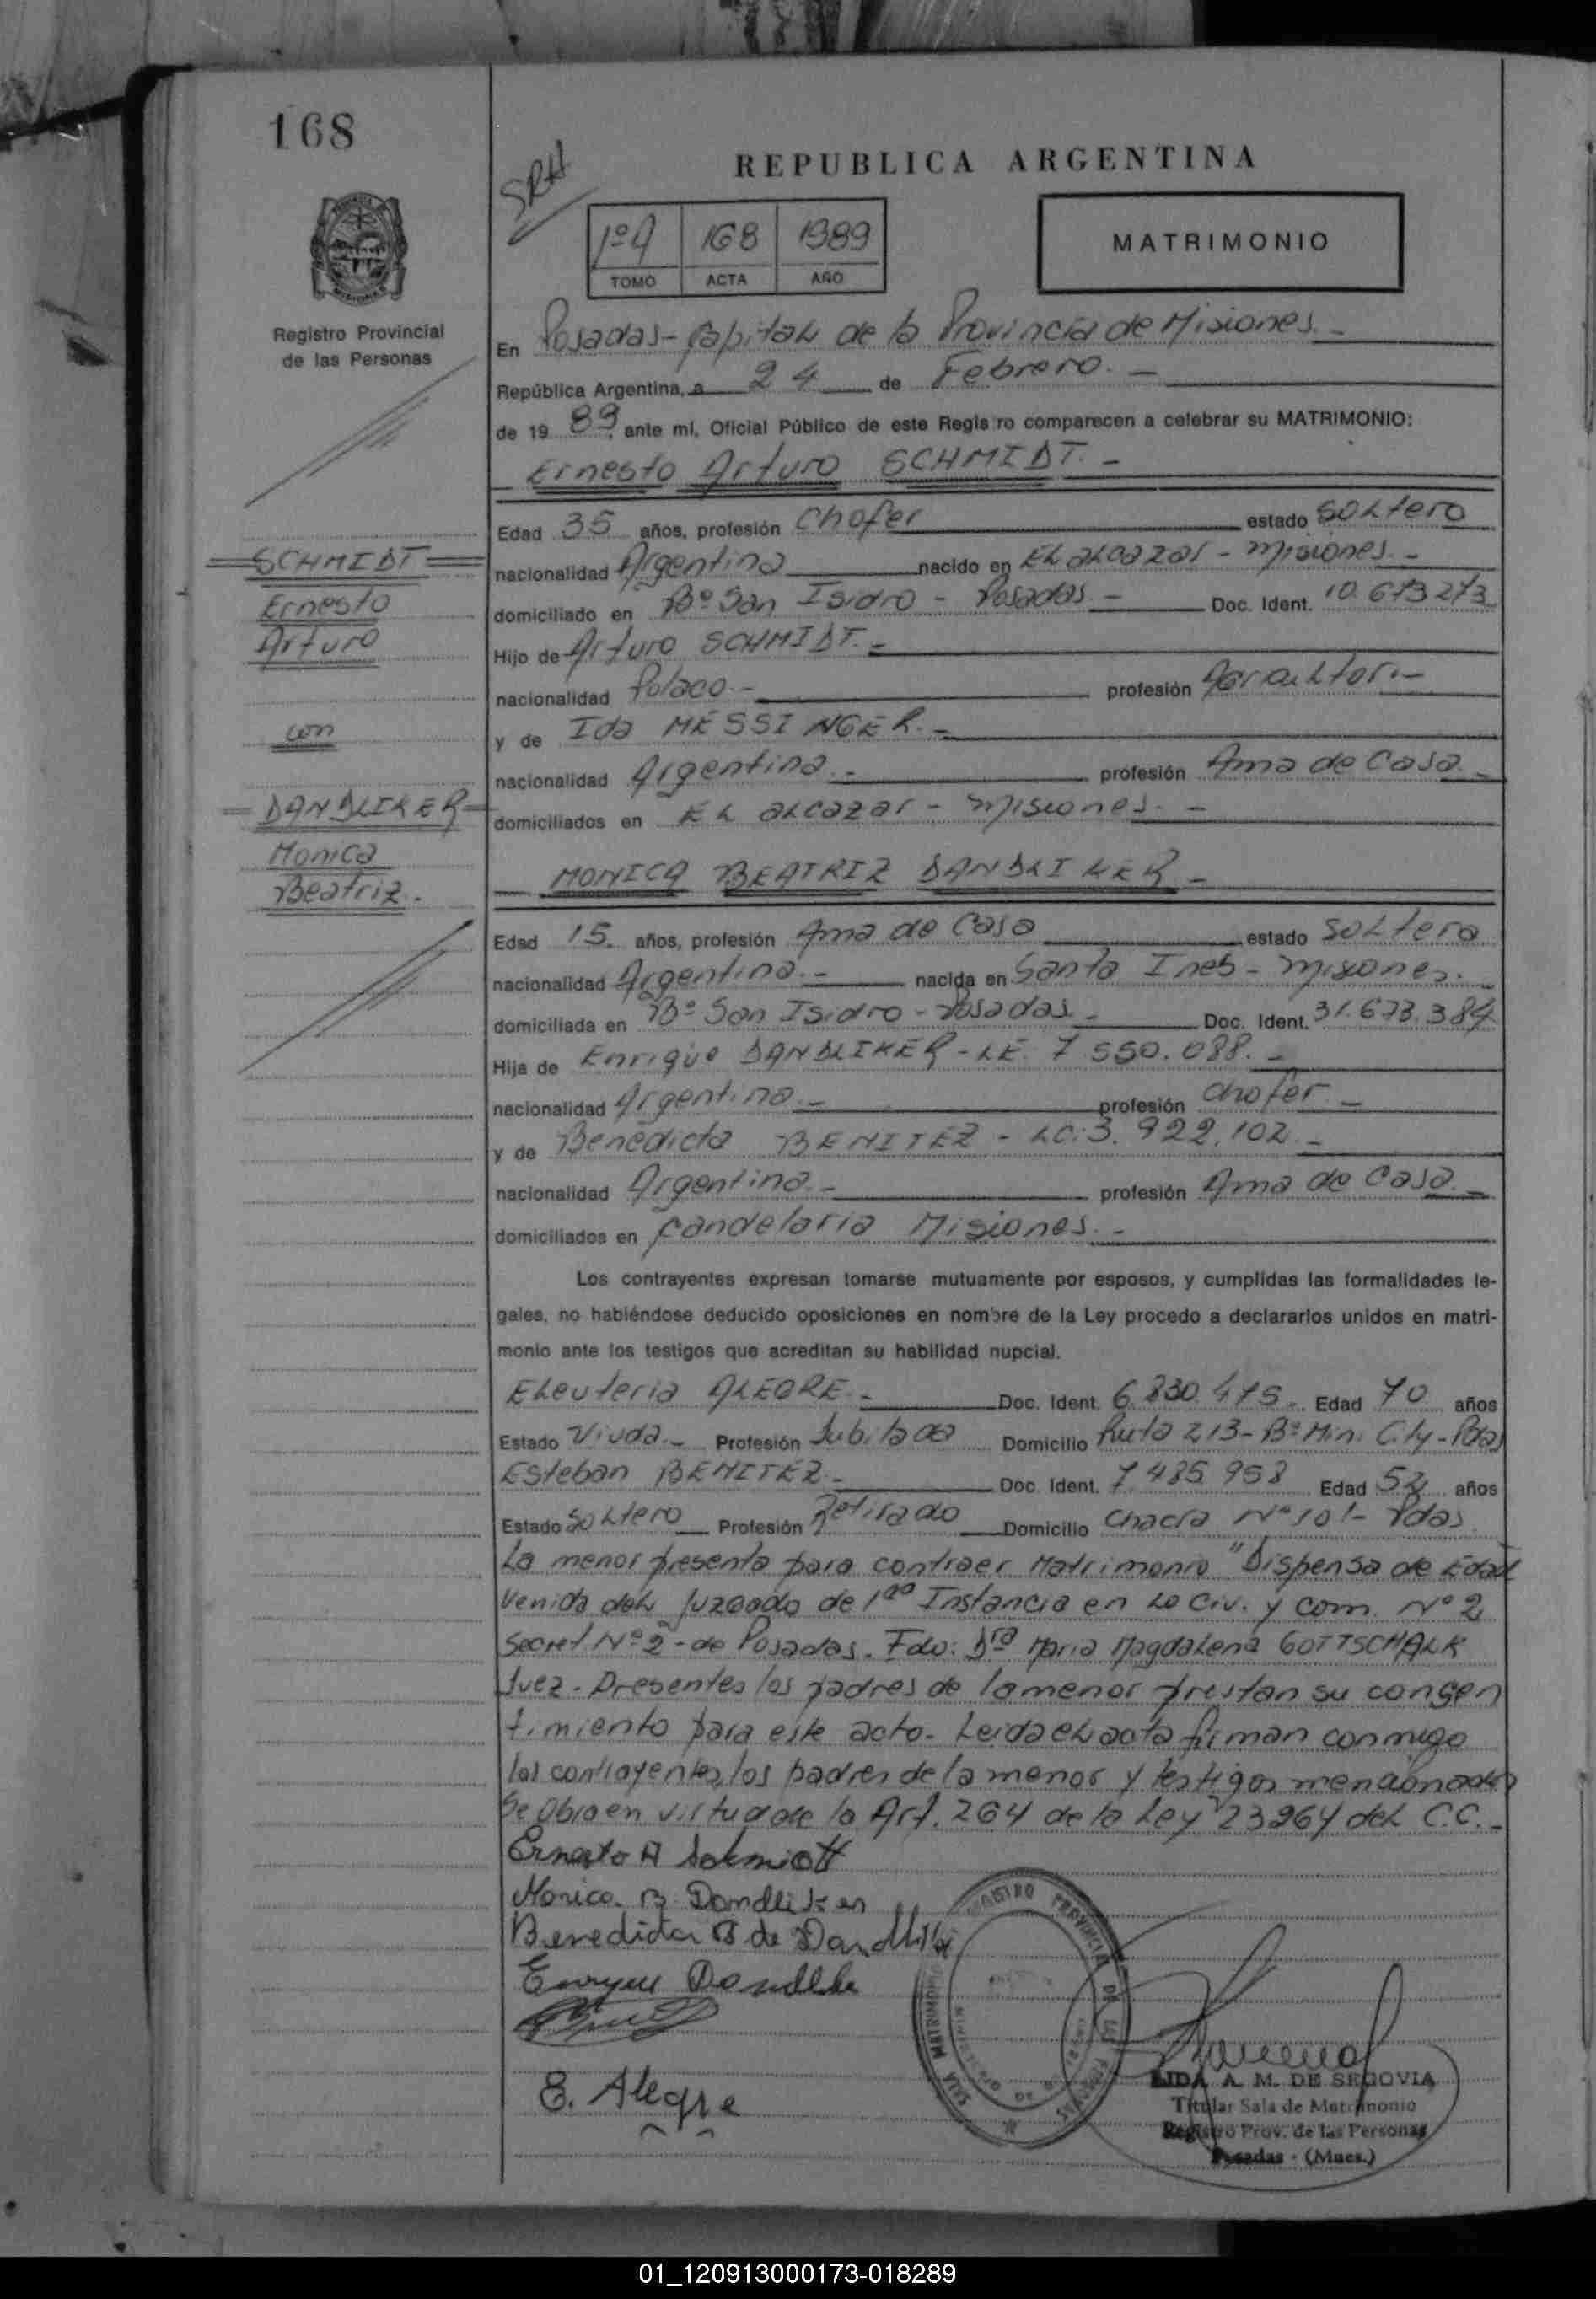 168
REPUBLICA ARGENTINA
SRH
1º A 168 1989
TOMO ACTA AÑO
MATRIMONIO
Registro Provincial
de las Personas
En Posadas - Capital de la Provincia de Misiones. -
República Argentina, a 24 de Febrero. -
de 19 89 ante mí, Oficial Público de este Regis ro comparecen a celebrar su MATRIMONIO:
Ernesto Arturo SCHMIDT. -
Edad 35 años, profesión Chofer estado Soltero
SCHMIDT
nacionalidad Argentina nacido en El alcazar - Misiones. -
Ernesto
domiciliado en Bº San Isidro - Posadas. - Doc. Ident. 10.673.273
Arturo
Hijo de Arturo SCHMIDT. -
nacionalidad Polaco. - profesión Agricultor. -
con
y de Ida MESSINGER. -
nacionalidad Argentina. - profesión Ama de Casa. -
DANDLIKER
domiciliados en El alcazar - Misiones. -
Monica
Beatriz. -
MONICA BEATRIZ DANDLIKER -
Edad 15. años, profesión Ama de Casa estado Soltera
nacionalidad Argentina. - nacida en Santa Ines - Misiones.
domiciliada en Bº San Isidro - Posadas. - Doc. Ident. 31.673.384
Hija de Enrique DANDLIKER - LE. 7.550.088. -
nacionalidad Argentino. - profesión chofer -
y de Benedicta BENITEZ - LC: 3.922.102 -
nacionalidad Argentina. - profesión Ama de Casa. -
domiciliados en Candelaria Misiones. -
Los contrayentes expresan tomarse mutuamente por esposos, y cumplidas las formalidades le-
gales, no habiéndose deducido oposiciones en nombre de la Ley procedo a declararlos unidos en matri-
monio ante los testigos que acreditan su habilidad nupcial.
Eleuteria ALEGRE. - Doc. Ident. 6.830.475. Edad 70 años
Estado Viuda. - Profesión Jubilada Domicilio Ruta 213 - Bº Mini City - Pdas
Esteban BENITEZ. - Doc. Ident. 7.485.958 Edad 52 años
Estado Soltero Profesión Retirado Domicilio Chacra Nº 101 - Pdas
La menor presenta para contraer Matrimonio "Dispensa de Edad
Venida del Juzgado de 1ra Instancia en lo Civ. y Com. Nº 2
Secret. Nº 2 - de Posadas. Fdo: Dra Maria Magdalena GOTTSCHALK
Juez. - Presentes los padres de la menor prestan su consen
timiento para este acto. - Leida el acta firman conmigo
los contrayentes, los padres de la menor y testigos mencionados
Se Obra en virtud de la Art. 264 de la Ley 23264 del C.C. -
Ernesto A Schmidtt
Monica. B. Dandliker
Benedicta B de Dandliker
Enrique Dandliker
E. Alegre
SALA MATRIMONIO REGISTRO PROVINCIAL DE LAS PERSONAS
LIDA A. M. DE SEGOVIA
Titular Sala de Matrimonio
Registro Prov. de las Personas
Posadas - (Mnes.)
01_120913000173-018289